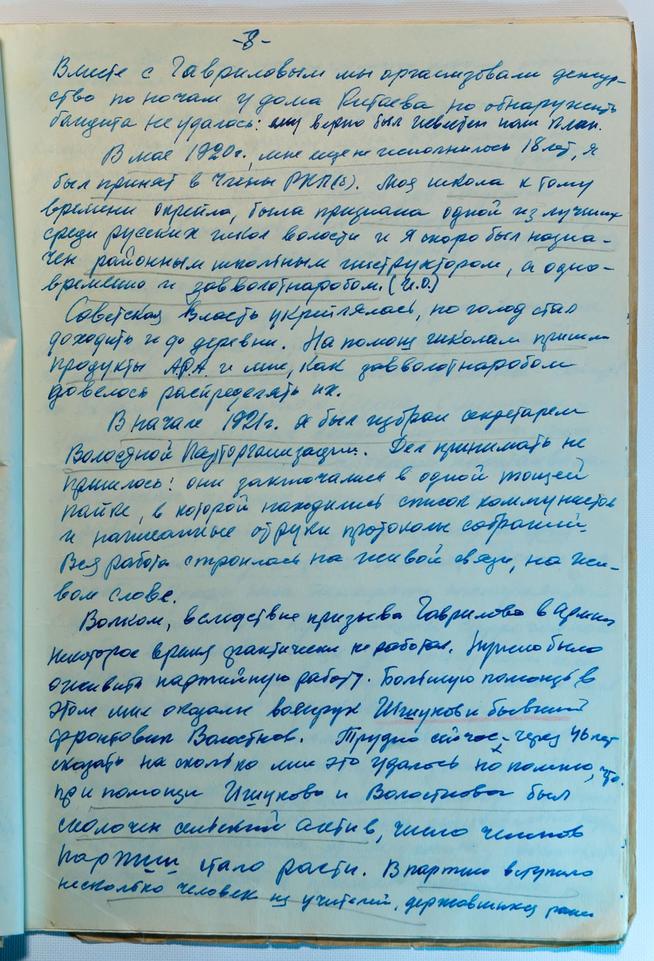 -8-
Вместе с Гавриловым мы организовали дежур-
ство по ночам у дома Китаева но обнаружить
бандита не удалось: ему верно был известен наш план.
В мае 1920г., мне еще не исполнилось 18 лет, я
был принят в члены РКП(б). Моя школа к тому
времени окрепла, была признана одной из лучших
среди русских школ волости и я скоро был назна-
чен районным школьным инструктором, а одно-
временно и завволотнаробом. (Н.О.)
Советская власть укреплялась, но голод стал
доходить и до деревни. На помощь школам пришли
продукты АРА и мне, как завволотнаробом
довелось распределять их.
В начале 1921г. я был избран секретарем
Волостной Парторганизации. Дел принимать не
пришлось: они заключались в одной тощей
папке, в которой находились список коммунистов
и написанные от руки протоколы собраний.
Вся работа строилась на живой связи, на жи-
вом слове.
Волком, вследствие призыва Гаврилова в армию
некоторое время фактически не работал. Нужно было
оживить партийную работу. Большую помощь в
этом мне оказали военрук Ишуков и бывший
фронтовик Волостнов. Трудно сейчас - через 46 лет
сказать на сколько мне это удалось но помню, что
при помощи Ишукова и Волостнова был
сколочен сельский актив, число членов
партии стало расти. В партию вступило
несколько человек из учителей, державшихся ранее